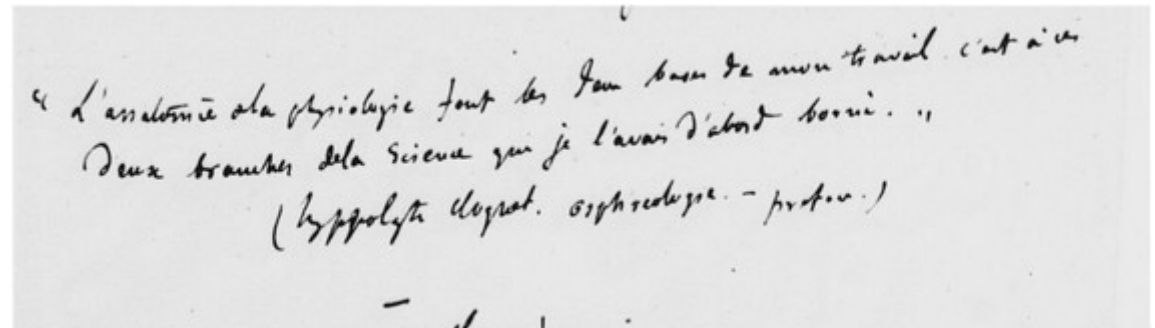 “ L'anatomie & la physiologie sont les deux bases de mon travail. c'est à ces
deux branches de la Science que je l'avais d'abord borné. „
(hyppolyte cloquet. osphresologie. – préface.)